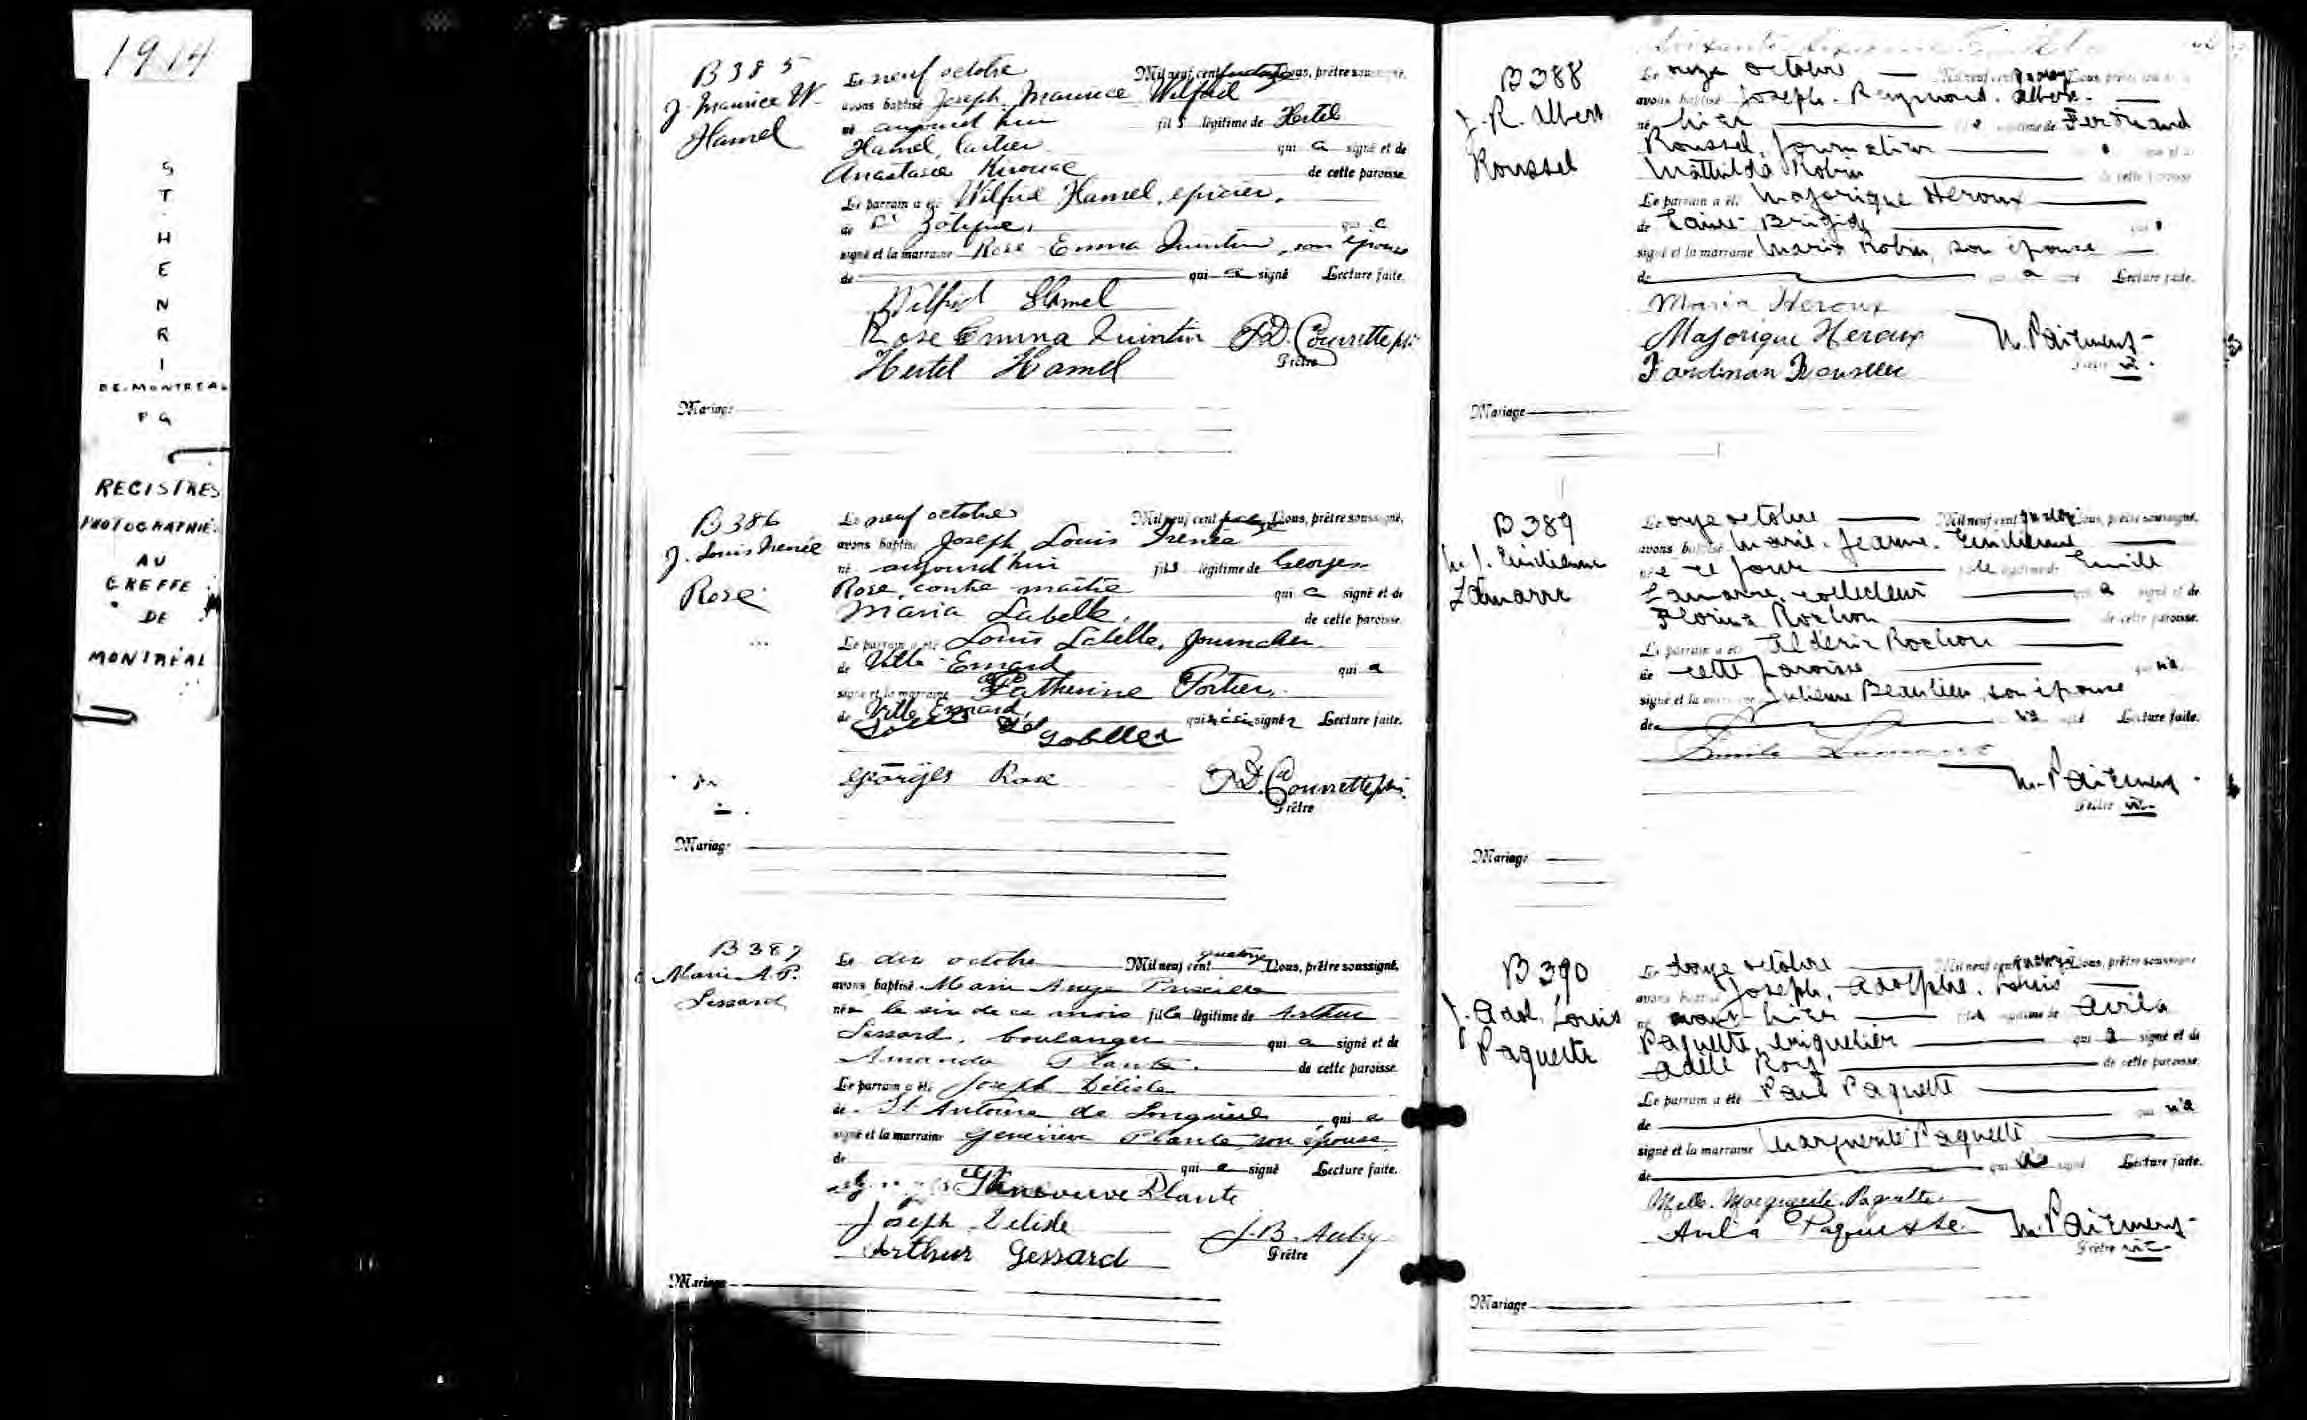 1914
ST HENRI
DE MONTREAL
PQ
REGISTRES
PHOTOGRAPHIÉ
AU
GREFFE
DE
MONTRÉAL
B 385
J. Maurice W.
Hamel
Le neuf octobre Mil neuf cent quatorze Nous, prêtre soussigné,
avons baptisé Joseph Maurice Wilfrid
né aujourd'hui fils légitime de Hertel
Hamel, qui a signé et de
Anastasie Kirouac de cette paroisse.
Le parrain a été Wilfrid Hamel, epicier,
de St Zotique, qui a
signé et la marraine Rose-Emma Quintin, son épouse
de qui a signé Lecture faite.
Wilfrid Hamel
Rose Emma Quintin
Hertel Hamel
Prêtre
Mariage
B 386
J. Louis Irenée
Rose
Le neuf octobre Mil neuf cent Nous, prêtre soussigné,
avons baptisé Joseph Louis Irenée
né aujourd'hui fils légitime de Georges
Rose, contre maître qui a signé et de
Maria Labelle, de cette paroisse.
Le parrain a été Louis Labelle,
de Ville Emard qui a
signé et la marraine Catherine Portier,
de Ville Emard, qui signer Lecture faite.
Georges Rose
Prêtre
Mariage
B 387
Marie A. P.
Lessard
Le dix octobre Mil neuf cent quatorze Nous, prêtre soussigné,
avons baptisé Marie Ange Priscille
née le six de ce mois fille légitime de Arthur
Lessard, boulanger qui a signé et de
Amanda Plante. de cette paroisse.
Le parrain a été Joseph Délisle
de St Antoine de Longueuil qui a
signé et la marraine Geneviève Plante, son épouse
de qui a signé Lecture faite.
Genevieve Plante
Joseph Delisle
Arthur Lessard J. B. Aubry
Prêtre
Mariage
B 388
J. R. Albert
Roussel
Le onze octobre Mil neuf cent quatorze Nous, prêtre
avons baptisé Joseph. Raymond. Albert.
né hier légitime de Ferdinand
Roussel, journalier
Mathilda Robin de cette paroisse
Le parrain a été Majorique Heroux
de Sainte Brigide
signé et la marraine Maria Robin, son épouse
de a signé Lecture faite.
Maria Heroux
Majorique Heroux
Prêtre vic.
Mariage
B 389
M. J. Emilienne
Lamarre
Le onze octobre Mil neuf cent quatorze Nous, prêtre soussigné,
avons baptisé Marie. Jeanne. Emilienne
née ce jour légitime de Emile
Lamarre, collecteur qui a signé et de
Florina Rochon de cette paroisse.
Le parrain a été Aldéric Rochon
de cette paroisse qui n'a
signé et la marraine Julienne Beaulieu, son épouse
de Lecture faite.
Emile Lamarre
Prêtre vic.
Mariage
B 390
J. Adol. Louis
Paquette
Le douze octobre Mil neuf cent quatorze Nous, prêtre soussigné
avons baptisé Joseph. Adolphe. Louis
né avant hier légitime de Avila
Paquette, qui a signé et de
Adèle Roy de cette paroisse.
Le parrain a été Paul Paquette
de qui n'a
signé et la marraine Marguerite Paquette
de qui a signé Lecture faite.
Melle. Marguerite Paquette
Avila Paquette
Prêtre vic.
Mariage